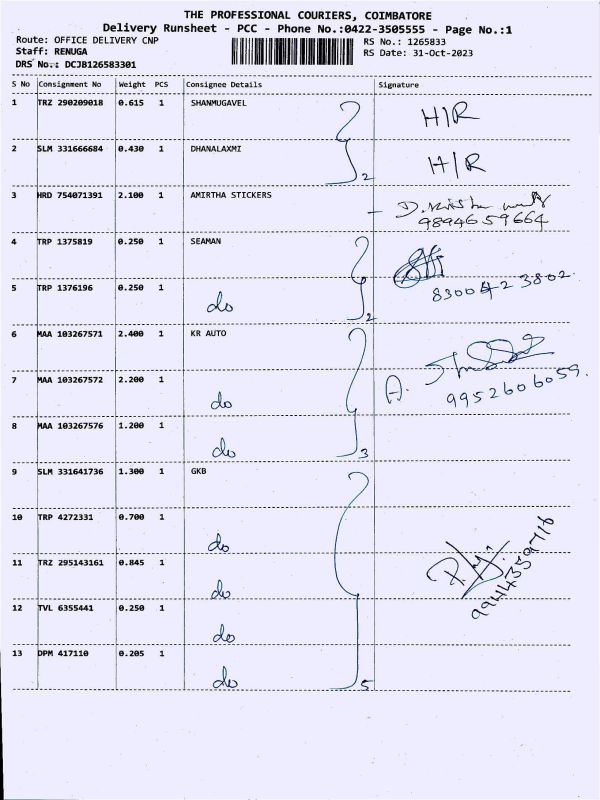 THE PROFESSIONAL COURIERS, COIMBATORE
Delivery Runsheet - PCC - Phone No.:0422-3505555 - Page No.:1
Route: OFFICE DELIVERY CNP
RS No.: 1265833
Staff: RENUGA
RS Date: 31-Oct-2023
DRS No.: DCJB126583301
S No Consignment No Weight PCS Consignee Details Signature
1 TRZ 290209018 0.615 1 SHANMUGAVEL H/R
2 SLM 331666684 0.430 1 DHANALAXMI H/R
2
3 HRD 754071391 2.100 1 AMIRTHA STICKERS
9894659664
4 TRP 1375819 0.250 1 SEAMAN
83004 23802
5 TRP 1376196 0.250 1 do
2
6 MAA 103267571 2.400 1 KR AUTO
7 MAA 103267572 2.200 1 do A.
9952606059
8 MAA 103267576 1.200 1 do
3
9 SLM 331641736 1.300 1 GKB
10 TRP 4272331 0.700 1 do
11 TRZ 295143161 0.845 1 do
9944359716
12 TVL 6355441 0.250 1 do
13 DPM 417110 0.205 1 do
5